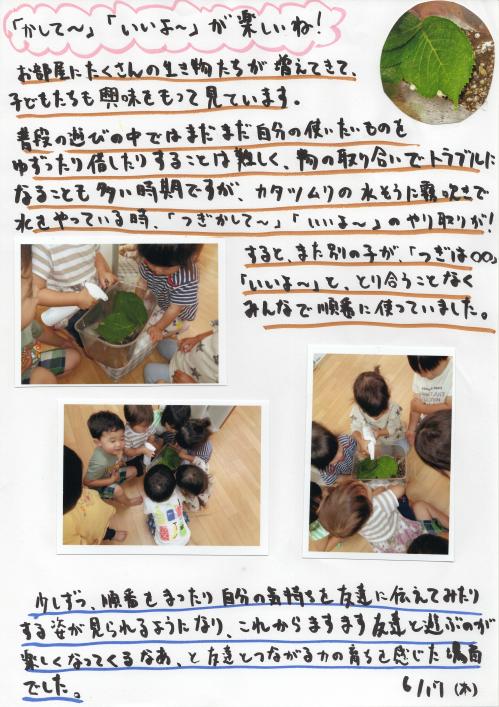 「かして〜」「いいよ〜」が楽しいね！
お部屋にたくさんの生き物たちが増えてきて、
子どもたちも興味をもって見ています。
普段の遊びの中ではまだまだ自分の使いたいものを
ゆずったり借したりすることは難しく、物の取り合いでトラブルに
なることも多い時期ですが、カタツムリの水そうに霧吹きで
水をやっている時、「つぎかして〜」「いいよ〜」のやり取りが！
すると、また別の子が、「つぎは○○」
「いいよ〜」と、とり合うことなく
みんなで順番に使っていました。
少しずつ、順番をまったり自分の気持ちを友達に伝えてみたり
する姿が見られるようになり、これからますます友達と遊ぶのが
楽しくなってくるなあ、と友達とつながる力の育ちを感じた場面
でした。
6/17(木)